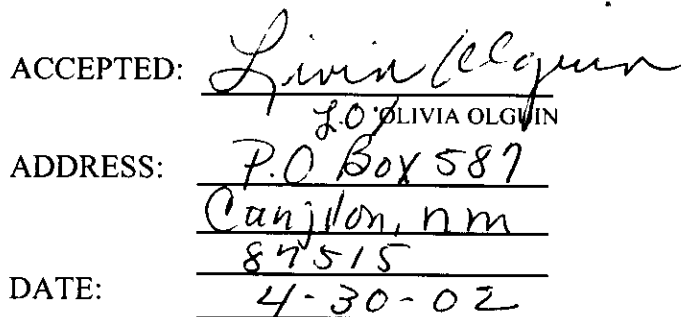 ACCEPTED: Livia Olguin
L.O. OLIVIA OLGUIN
ADDRESS: P.O Box 587
Canjilon, nm
87515
DATE: 4-30-02